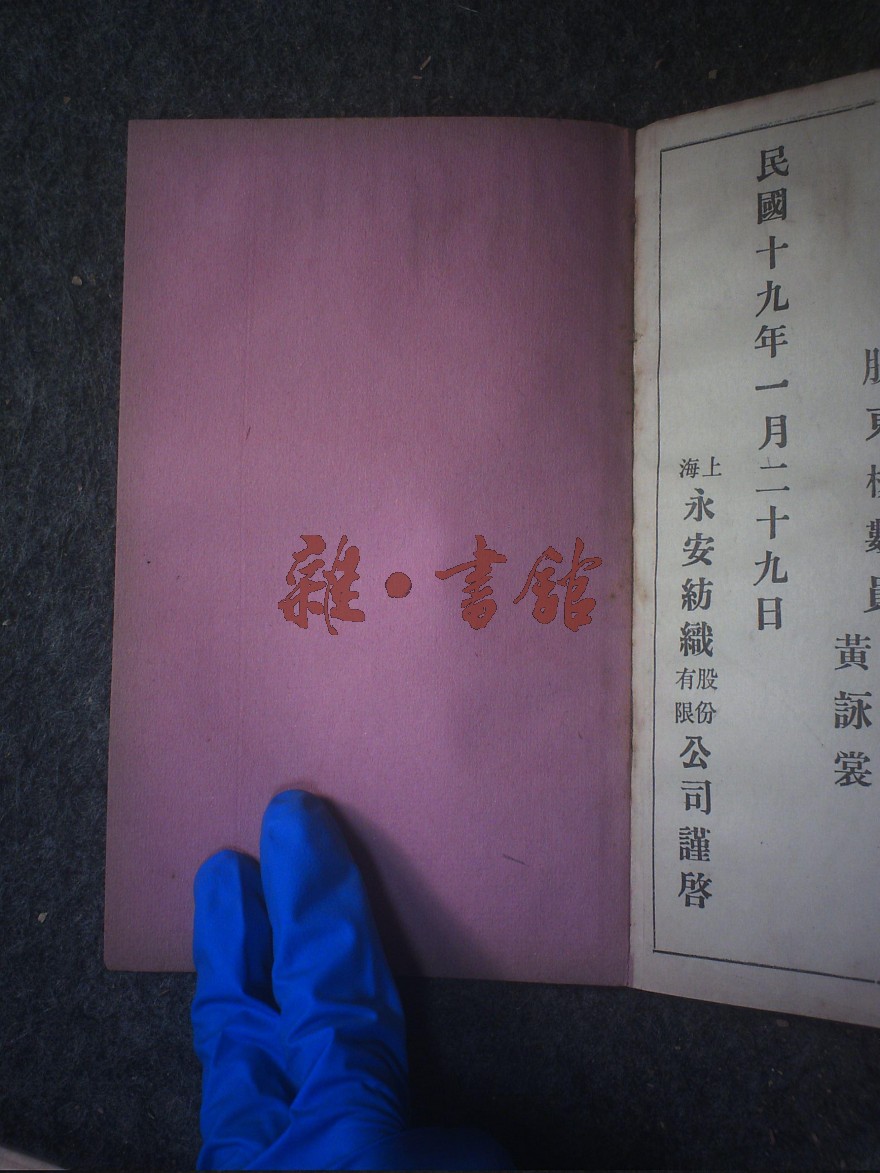 股東核數員
黃詠裳
民國十九年一月二十九日
上海永安紡織股份有限公司謹啓
雜·書館